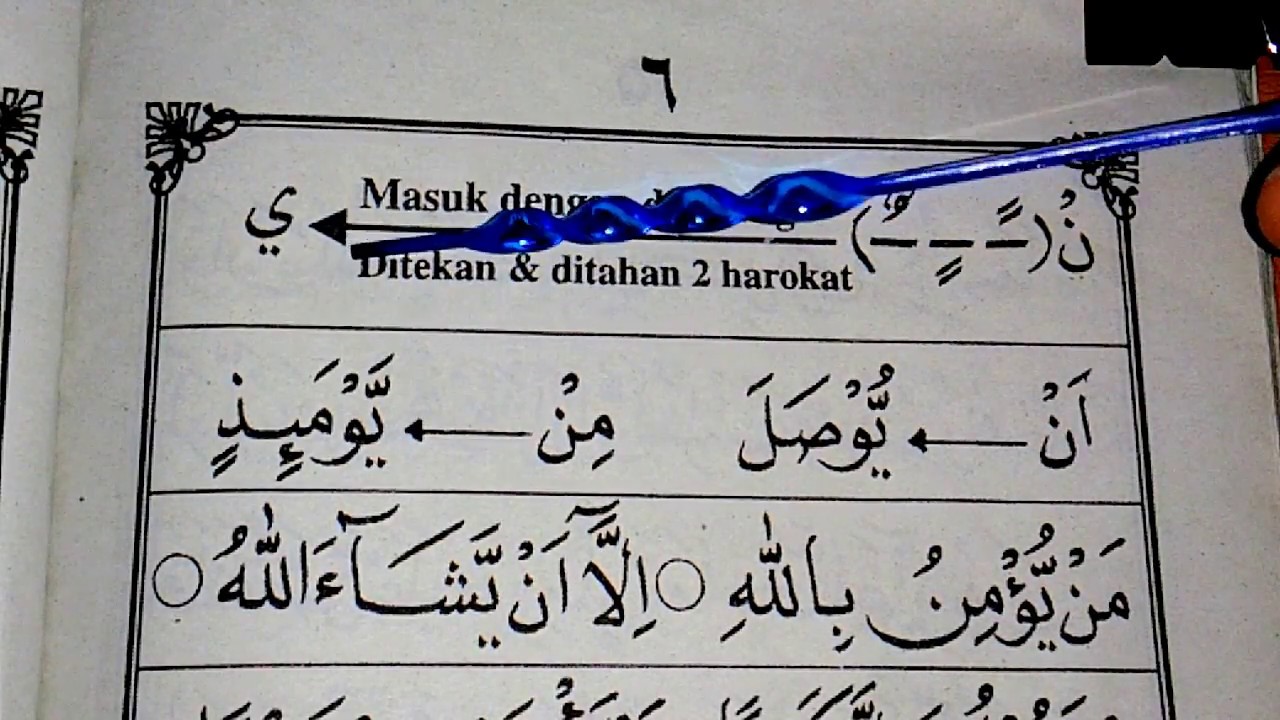 ٦
نْ (ـًـ ـٍـ ـٌـ) ي
Masuk
Ditekan & ditahan 2 harokat
اَنْ يُّوْصَلَ مِنْ يَّوْمَىِٕذٍ
مَنْ يُّؤْمِنُ بِاللّٰهِ ○ اِلَّآ اَنْ يَّشَآءَ اللّٰهُ ○